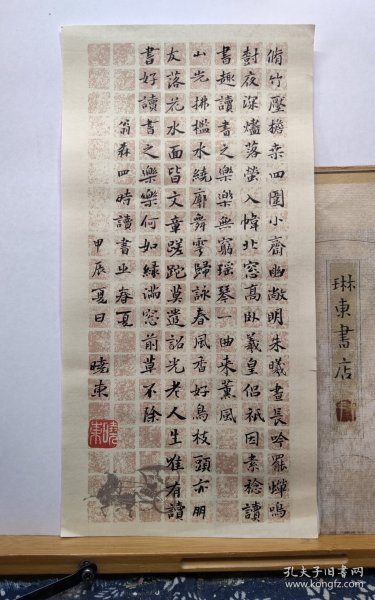 脩竹壓檐桑四圍小齋幽敞明朱曦晝長吟罷蟬鳴
樹夜深燼落螢入幃北窓高卧羲皇侣祇因素稔讀
書趣讀書之樂樂無窮瑶琴一曲来薰風
山光拂檻水繞廊舞雩歸詠春風香好鳥枝頭亦朋
友落花水面皆文章蹉跎莫遣韶光老人生唯有讀
書好讀書之樂樂何如緑滿窓前草不除
翁森四時讀書樂春夏
甲辰夏日 曉東
曉東
琳東書店
孔夫子旧书网
kongfz.com